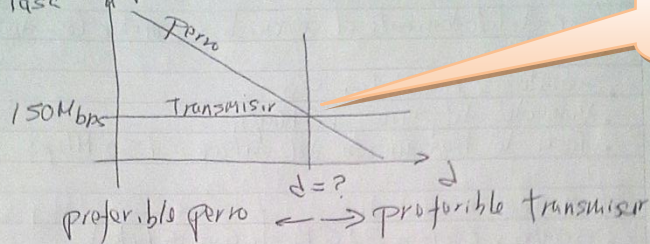 Perro
150Mbps
Transmisir
d
d = ?
preferible perro ← → proforible transmisir